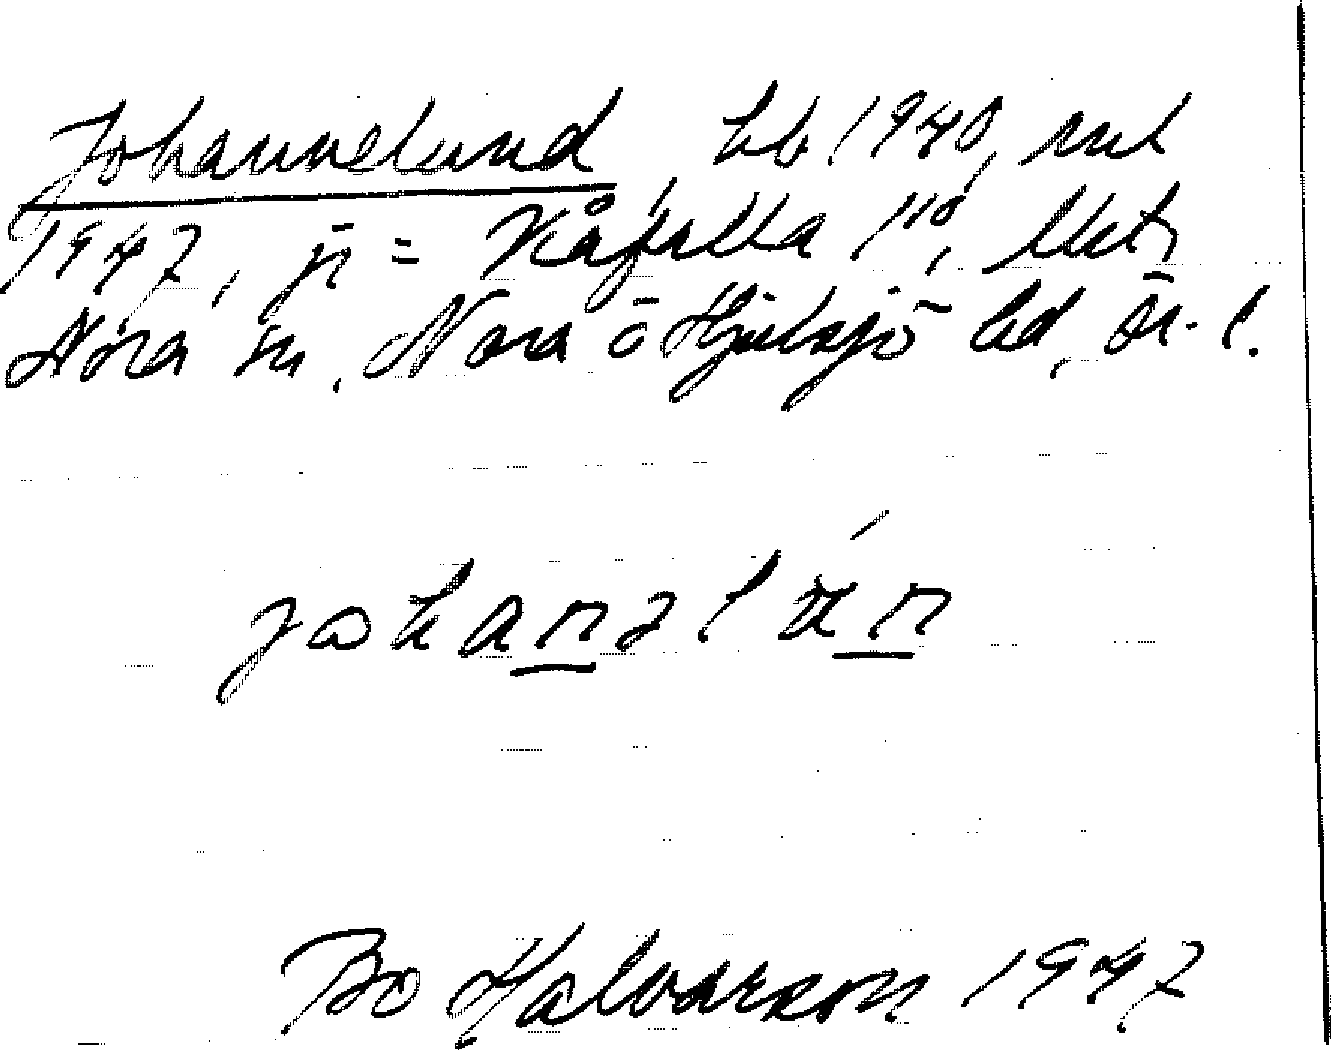 Johannelund hb 1940, rul
1947, jr = Kåfalla 1¹⁰,
Nora sn. Nora o Hjulsjö bd, Ör. l.
johanəlún
Bo Halvarson 1947